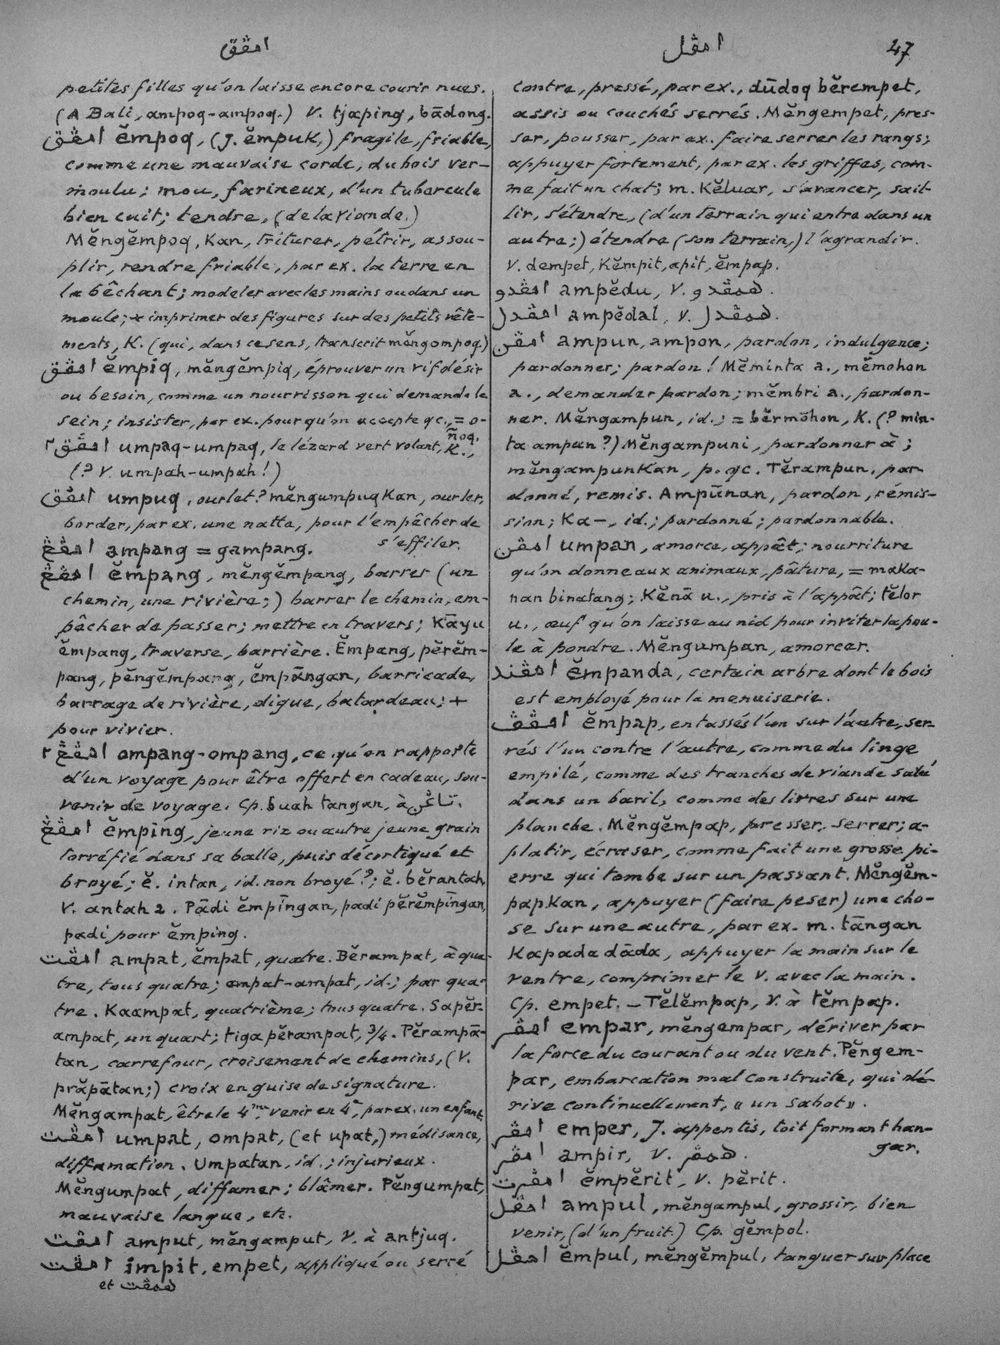 امڤق
امڤل
47
petites filles qu'on laisse encore courir nues.
(A Bali, ampoq-ampoq.) V. tjaping, bādong.
امڤق ĕmpoq, (J. ĕmpuk,) fragile, friable,
comme une mauvaise corde, du bois ver-
moulu; mou, farineux, d'un tubercule
bien cuit; tendre, (de la viande.)
Mĕngĕmpoq, Kan, triturer, pétrir, assou-
plir, rendre friable, par ex. la terre en
la bêchant; modeler avec les mains ou dans un
moule; + imprimer des figures sur des petits vête-
ments, K. (qui, dans ce sens, transcrit mĕngompoq.)
امڤق ĕmpiq, mĕngĕmpiq, éprouver un vif désir
ou besoin, comme un nourrisson qui demande le
sein; insister, par ex. pour qu'on accepte qc., = o-
ñoq, K.,
امڤق٢ umpaq-umpaq, le lézard vert volant,
(? V. umpah-umpah!)
امڤق umpuq, ourlet? mĕngumpuqKan, ourler,
border, par ex. une natte, pour l'empêcher de
s'effiler.
امڤڠ ampang = gampang.
امڤڠ ĕmpang, mĕngĕmpang, barrer (un
chemin, une rivière;) barrer le chemin, em-
pêcher de passer; mettre en travers; Kāyu
ĕmpang, traverse, barrière. Ĕmpang, pĕrĕm-
pang, pĕngĕmpang, ĕmpāngan, barricade,
barrage de rivière, digue, batardeau; +
pour vivier.
امڤڠ٢ ompang-ompang, ce qu'on rapporte
d'un voyage pour être offert en cadeau, sou-
venir de voyage. Cp. buah tangan, à تاڠن.
امڤڠ ĕmping, jeune riz ou autre jeune grain
torréfié dans sa balle, puis décortiqué et
broyé; ĕ. intan, id. non broyé?; ĕ. bĕrantah,
V. antah 2. Pādi ĕmpīngan, padi pĕrĕmpīngan,
padi pour ĕmping.
امڤت ampat, ĕmpat, quatre. Bĕrampat, à qua-
tre, tous quatre; ampat-ampat, id.; par qua-
tre. Kaampat, quatrième; tous quatre. Sapĕr-
ampat, un quart; tiga pĕrampat, 3/4. Pĕrampā-
tan, carrefour, croisement de chemins, (V.
prāpātan;) croix en guise de signature.
Mĕngampat, être le 4me, venir en 4e, par ex. un enfant.
امڤت umpat, ompat, (et upat,) médisance,
diffamation. Umpatan, id.; injurieux.
Mĕngumpat, diffamer; blâmer. Pĕngumpat,
mauvaise langue, etc.
امڤت amput, mĕngamput, V. à antjuq.
امڤت impit, empet, appliqué ou serré
et همڤت
contre, pressé, par ex., dūdoq bĕrempet,
assis ou couchés serrés. Mĕngempet, pres-
ser, pousser, par ex. faire serrer les rangs;
appuyer fortement, par ex. les griffes, com-
me fait un chat; m. Kĕluar, s'avancer, sail-
lir, s'étendre, (d'un terrain qui entre dans un
autre;) étendre (son terrain,) l'agrandir.
V. dempet, Kĕmpit, apit, ĕmpap.
امڤدو ampĕdu, V. همڤدو.
امڤدل ampĕdal, V. همڤدل.
امڤن ampun, ampon, pardon, indulgence;
pardonner; pardon! Mĕminta a., mĕmohon
a., demander pardon; mĕmbri a., pardon-
ner. Mĕngampun, id.; = bĕrmōhon, K. (? min-
ta ampun?) Mĕngampuni, pardonner à;
mĕngampunKan, p. qc. Tĕrampun, par-
donné, remis. Ampūnan, pardon, rémis-
sion; Ka—, id.; pardonné; pardonnable.
امڤن umpan, amorce, appât; nourriture
qu'on donne aux animaux, pâture, = maKa-
nan binatang; Kĕnā u., pris à l'appât; tĕlor
u., œuf qu'on laisse au nid pour inviter la pou-
le à pondre. Mĕngumpan, amorcer.
امڤند ĕmpanda, certain arbre dont le bois
est employé pour la menuiserie.
امڤڤ ĕmpap, entassés l'un sur l'autre, ser-
rés l'un contre l'autre, comme du linge
empilé, comme des tranches de viande salé
dans un baril, comme des livres sur une
planche. Mĕngĕmpap, presser, serrer; a-
platir, écraser, comme fait une grosse pi-
erre qui tombe sur un passant. Mĕngĕm-
papKan, appuyer (faire peser) une cho-
se sur une autre, par ex. m. tāngan
Kapada dāda, appuyer la main sur le
ventre, comprimer le v. avec la main.
Cp. empet. — Tĕlĕmpap, V. à tĕmpap.
امڤر empar, mĕngempar, dériver par
la force du courant ou du vent. Pĕngem-
par, embarcation mal construite, qui dé-
rive continuellement, « un sabot ».
امڤر emper, J. appentis, toit formant han-
gar.
امڤر ampir, V. همڤر.
امڤرت ĕmpĕrit, V. pĕrit.
امڤل ampul, mĕngampul, grossir, bien
venir, (d'un fruit.) Cp. gĕmpol.
امڤل ĕmpul, mĕngĕmpul, tanguer sur place